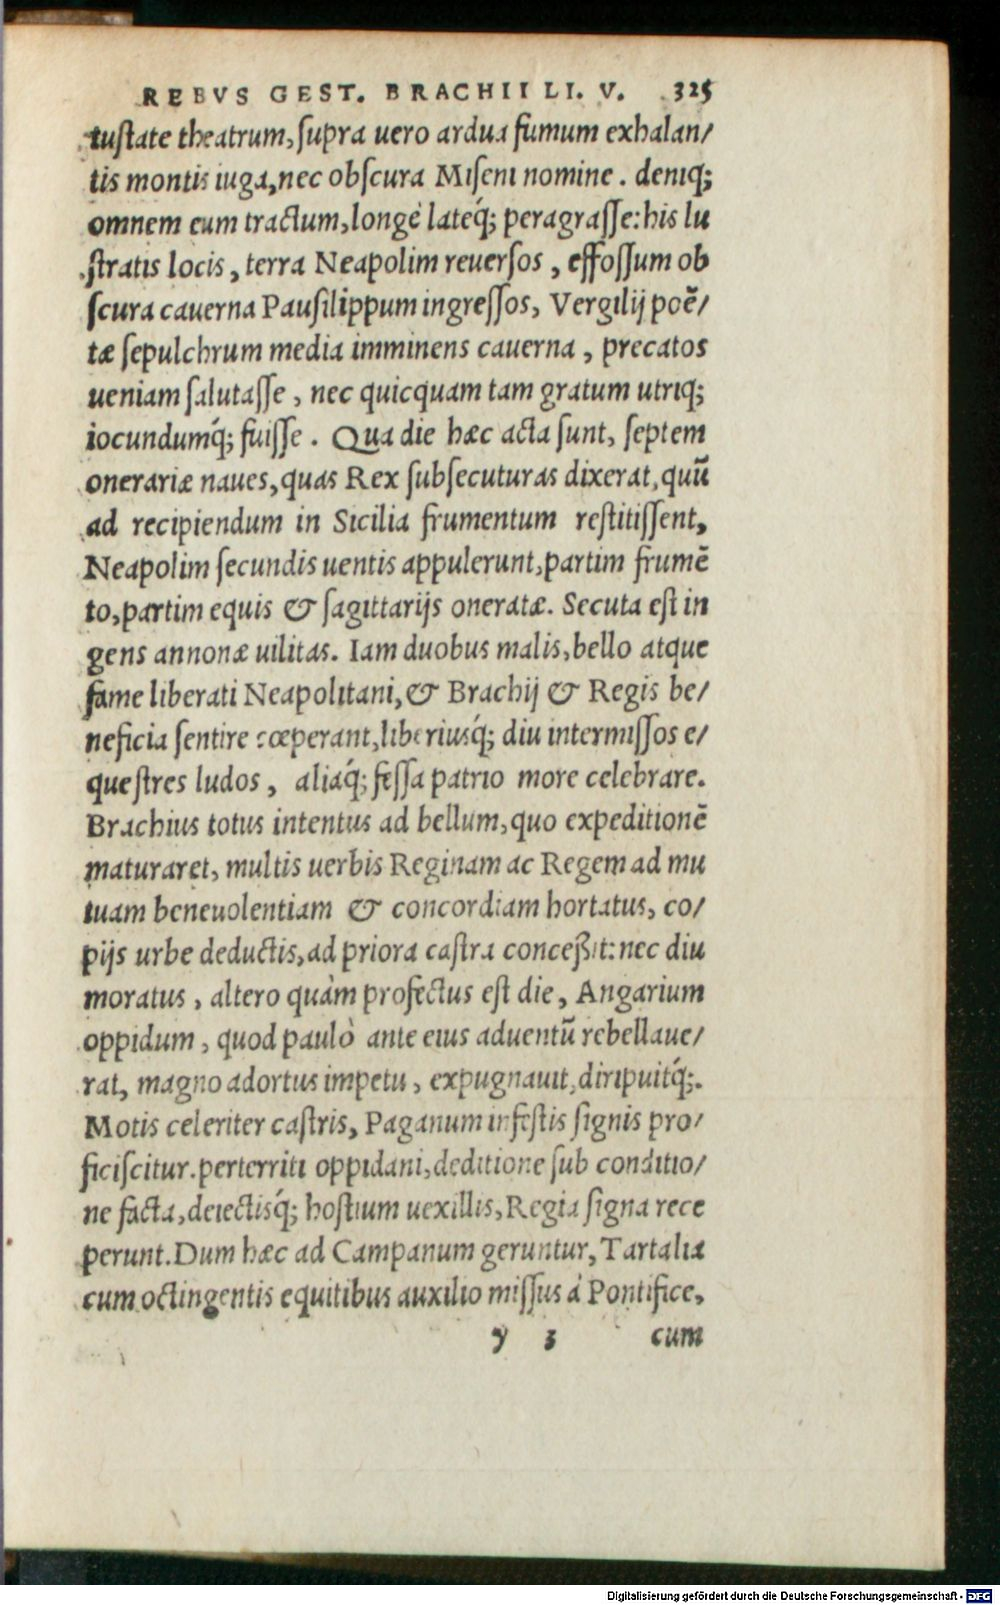 REBVS GEST. BRACHII LI. V. 325
tustate theatrum, supra uero ardua fumum exhalan/
tis montis iuga, nec obscura Miseni nomine. deniq;
omnem eum tractum, longè lateq́; peragrasse: his lu
stratis locis, terra Neapolim reuersos, effossum ob
scura cauerna Pausilippum ingressos, Vergilij poẽ/
tæ sepulchrum media imminens cauerna, precatos
ueniam salutasse, nec quicquam tam gratum utriq;
iocundumq́; fuisse. Qua die hæc acta sunt, septem
onerariæ naues, quas Rex subsecuturas dixerat, quũ
ad recipiendum in Sicilia frumentum restitissent,
Neapolim secundis uentis appulerunt, partim frumẽ
to, partim equis & sagittarijs oneratæ. Secuta est in
gens annonæ uilitas. Iam duobus malis, bello atque
fame liberati Neapolitani, & Brachij & Regis be/
neficia sentire cœperant, liberiusq́; diu intermissos e/
questres ludos, aliaq́; fessa patrio more celebrare.
Brachius totus intentus ad bellum, quo expeditionẽ
maturaret, multis uerbis Reginam ac Regem ad mu
tuam beneuolentiam & concordiam hortatus, co/
pijs urbe deductis, ad priora castra conceßit: nec diu
moratus, altero quàm profectus est die, Angarium
oppidum, quod paulò ante eius aduentũ rebellaue/
rat, magno adortus impetu, expugnauit, diripuitq́;.
Motis celeriter castris, Paganum infestis signis pro/
ficiscitur. perterriti oppidani, deditione sub conditio/
ne facta, deiectisq́; hostium uexillis, Regia signa rece
perunt. Dum hæc ad Campanum geruntur, Tartalia
cum octingentis equitibus auxilio missus à Pontifice,
y 3 cum
Digitalisierung gefördert durch die Deutsche Forschungsgemeinschaft - DFG